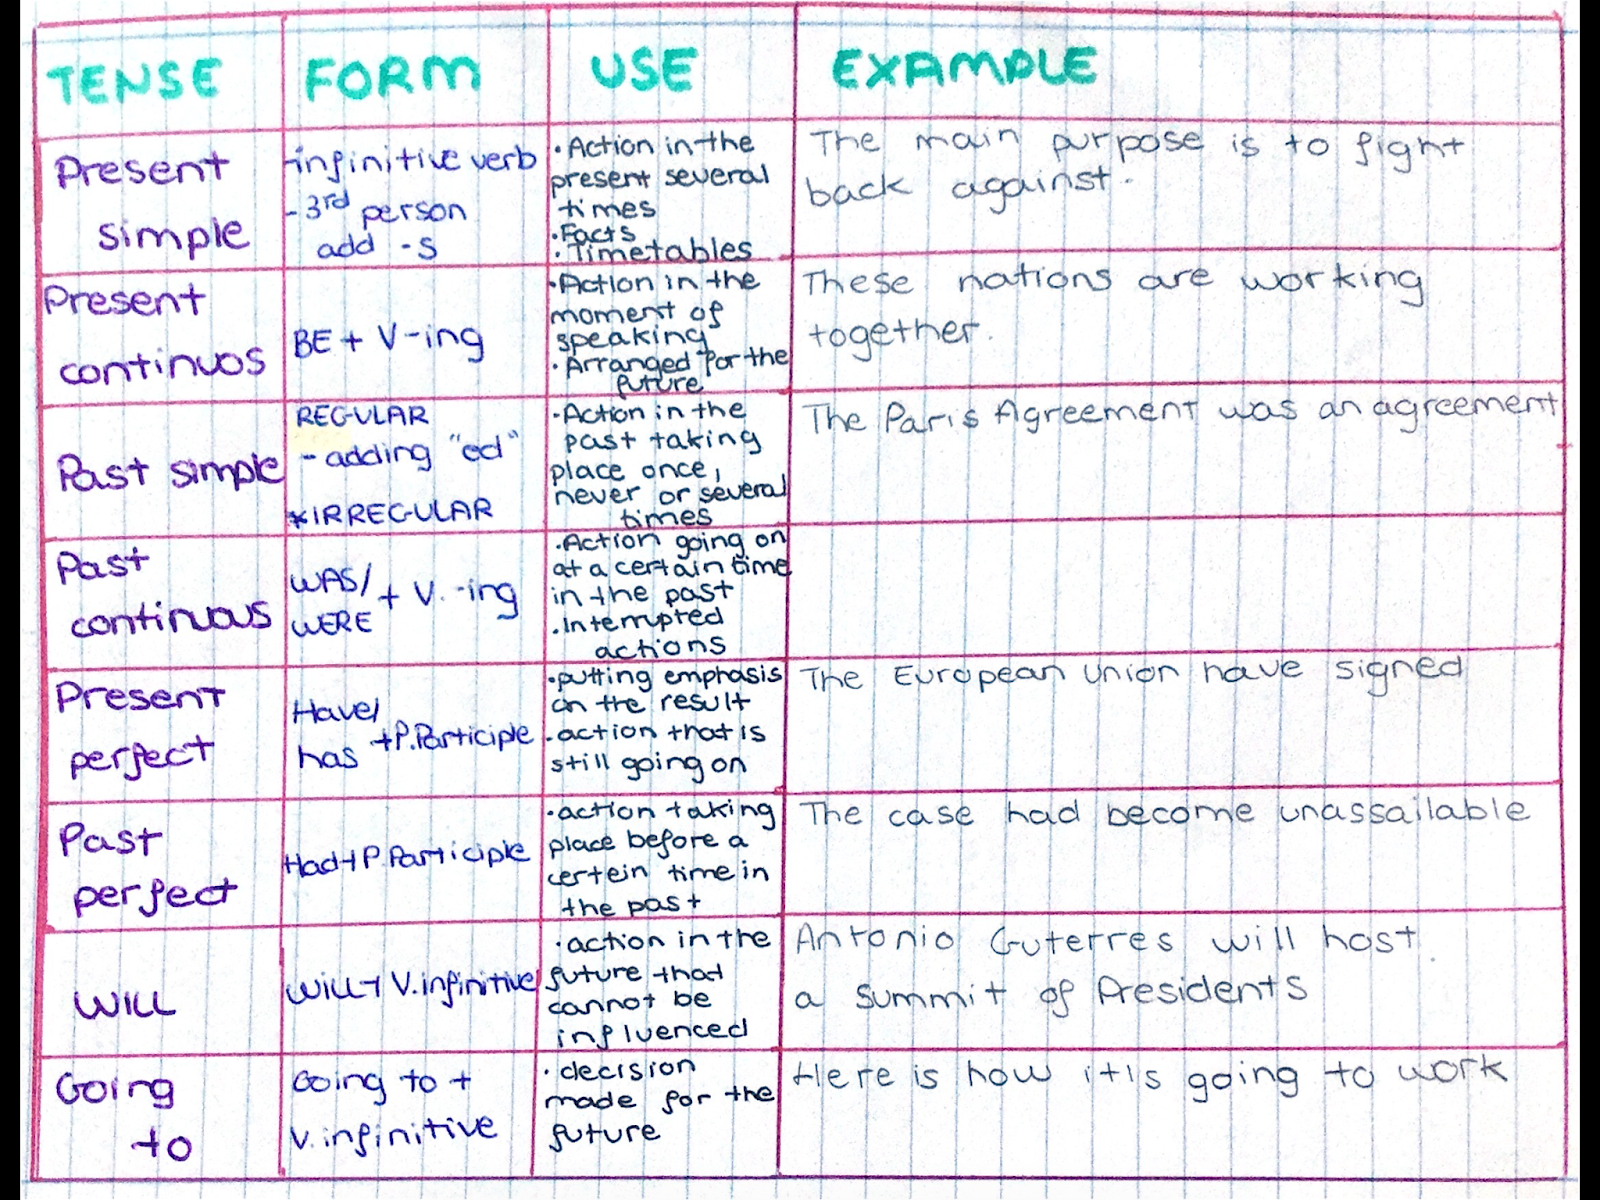 TENSE FORM USE EXAMPLE
Present
simple
-infinitive verb
- 3rd person
add -s
·Action in the
present several
times
·Facts
·Timetables
The main purpose is to fight
back against.
Present
continuos
BE + V-ing
·Action in the
moment of
speaking
·Arranged for the
future
These nations are working
together.
Past simple
REGULAR
- adding "ed"
*IRREGULAR
·Action in the
past taking
place once,
never or several
times
The Paris Agreement was an agreement
Past
continuous
WAS/
WERE
+ V. -ing
·Action going on
at a certain time
in the past
·Interrupted
actions
Present
perfect
Have/
has
+P.Participle
·putting emphasis
on the result
·action that is
still going on
The European Union have signed
Past
perfect
Had+P.Participle
·action taking
place before a
certein time in
the past
The case had become unassailable
WILL
WILL+ V.infinitive
·action in the
future that
cannot be
influenced
Antonio Guterres will host
a summit of Presidents
Going
to
Going to +
V.infinitive
·decision
made for the
future
Here is how it is going to work